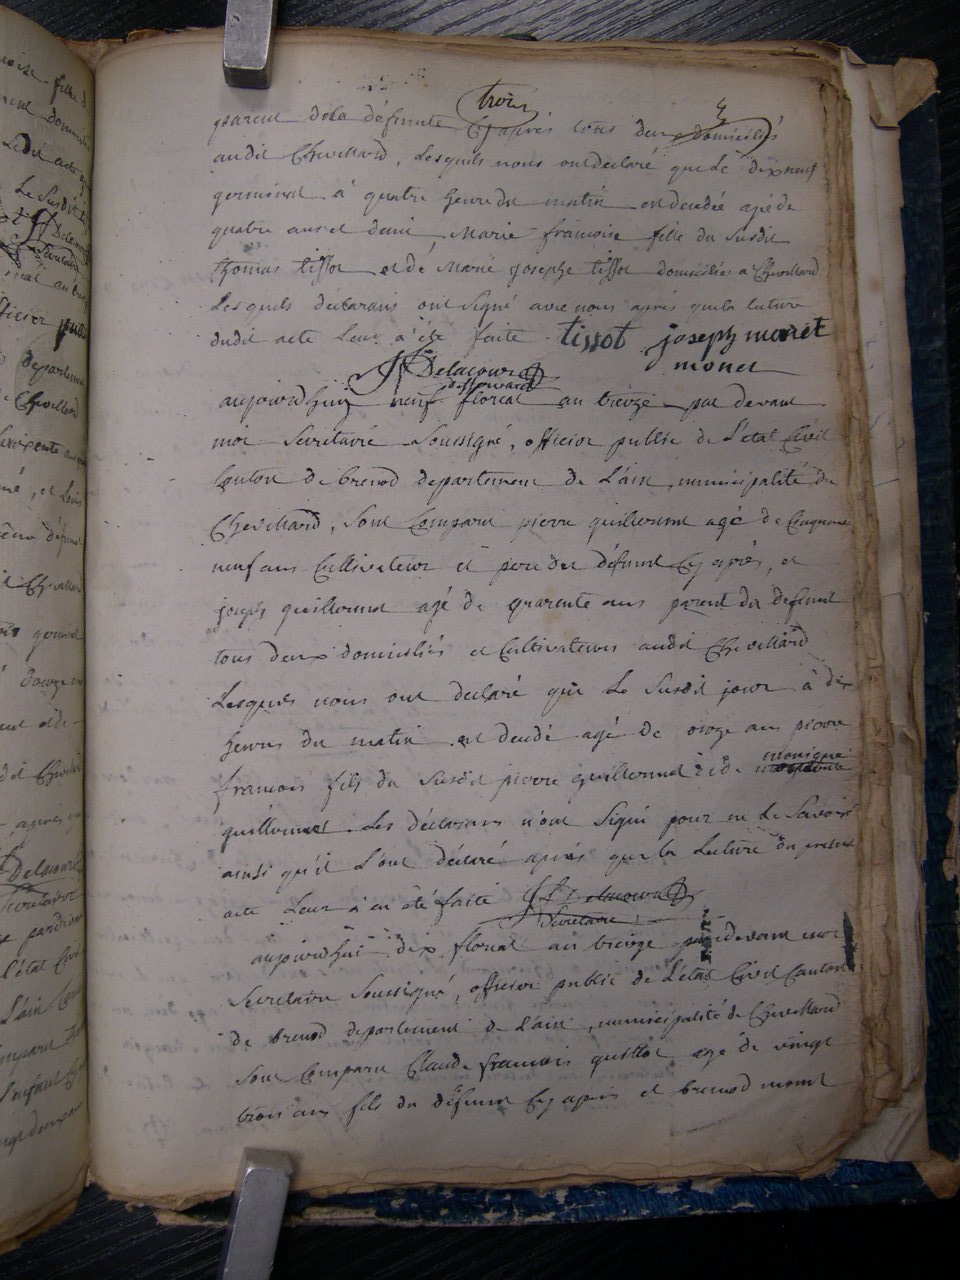 trois 4
parent dela défunte Cy après tous deux domiciliés
audit Chevillard, Lesquels nous ont declaré que Le dix neuf
germinal à quatre heure du matin est decedée agée de
quatre ans et demi, Marie francoise fille du susdit
thomas tissot et de Marie josephe tissot domiciliés a Chevillard
Lesquels déclarans ont signé avec nous après que la lecture
dudit acte Leur a été faite tissot joseph monet
monet
Delacour
aujourdhuy neuf floreal an treize par devant
moi Secrétaire Soussigné, officier public de L'état Civil
Canton de brenod departement de L'ain, municipalité de
Chevillard, sont Comparu pierre guillermet agé de Cinquante
neuf ans Cultivateur et pere du défunt Cy après, et
joseph guillermet agé de quarente ans parent du défunt
tous deux domiciliés et Cultivateurs audit Chevillard
Lesquels nous ont declaré que Le susdit jour à dix
heures du matin est decedé agé de onze ans pierre
francois fils du susdit pierre guillermet et de monique
guillermet Les déclarans n'ont signé pour ne Le Savoir
ainsi qu'il L'ont déclaré après que la Lecture du present
acte Leur a en été faite Delacour
Secretaire
aujourdhui dix floreal an treize pardevant moi
Secretaire Soussigné, officier public de L'etat Civil Canton
de brenod departement de L'ain, municipalité de Chevillard
sont Comparu Claude francois age de vingt
trois ans fils du défunt Cy après et brenod monet